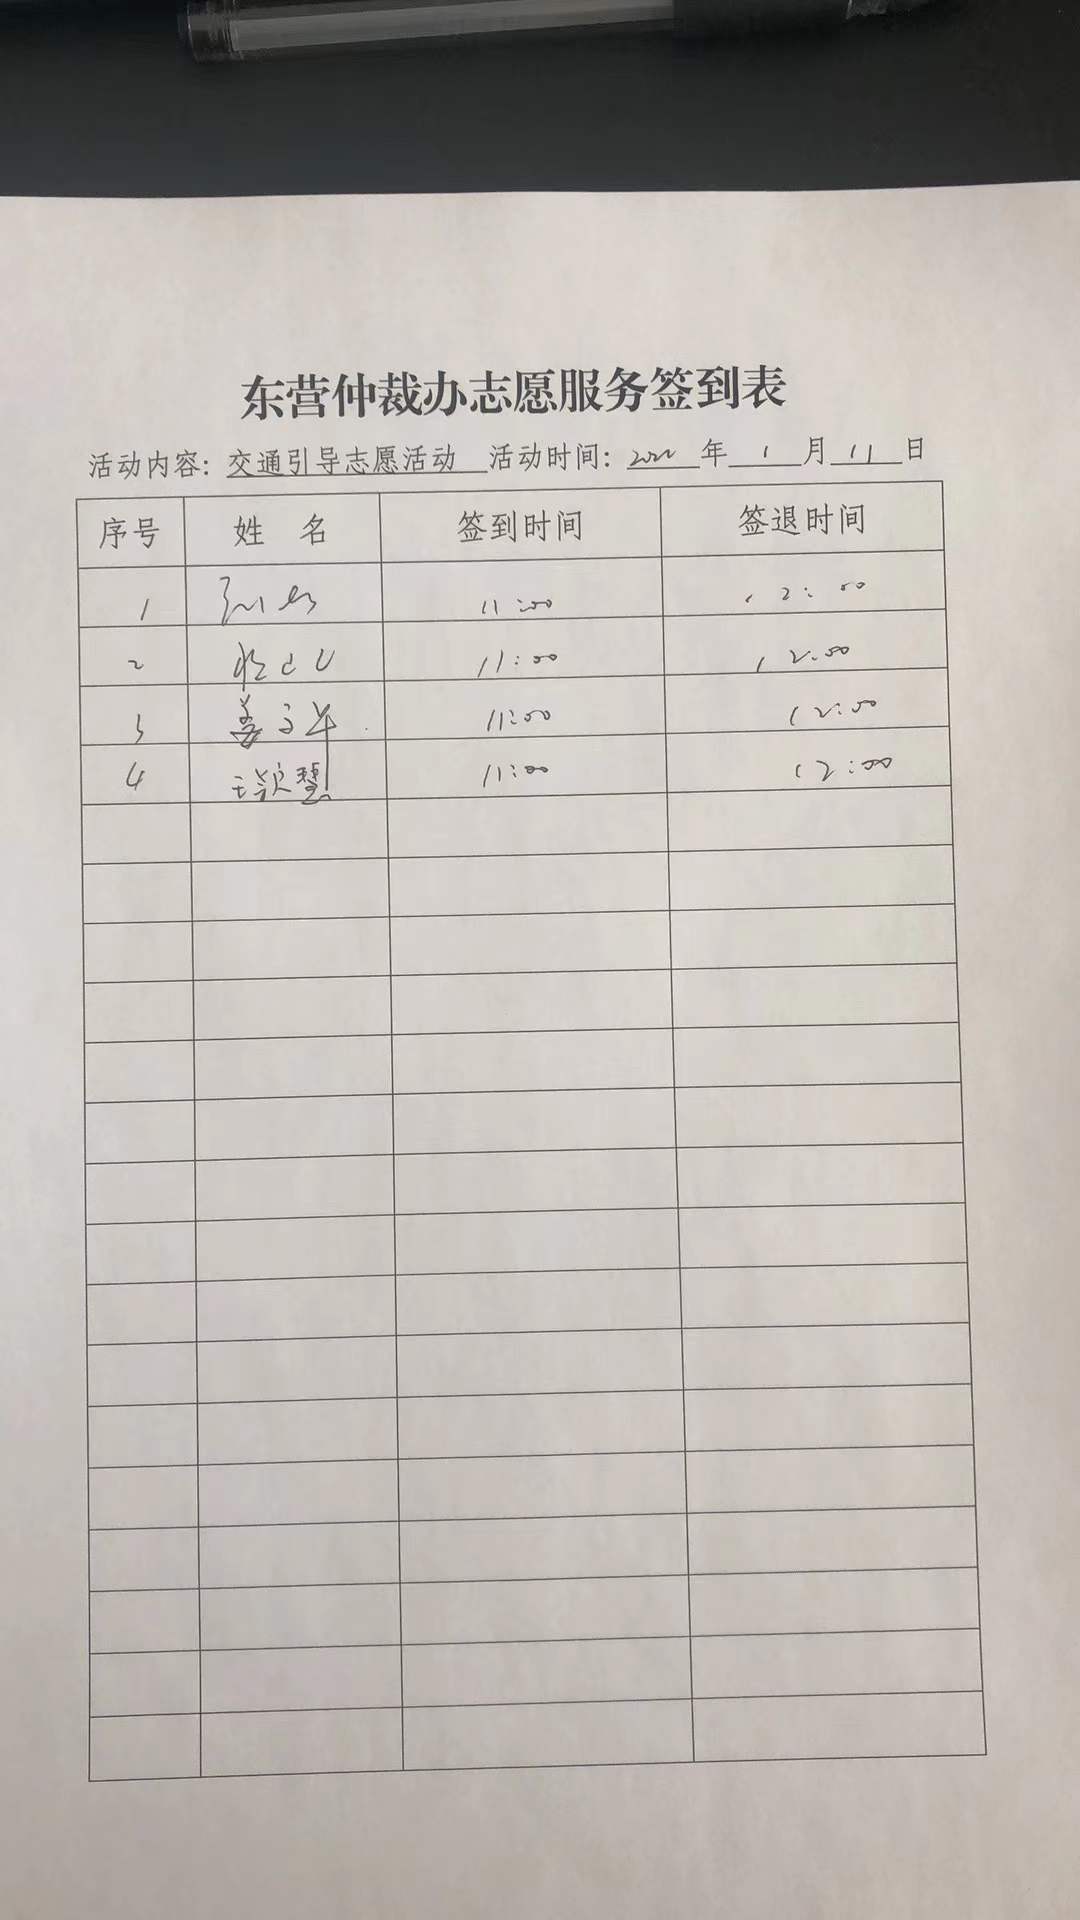 东营仲裁办志愿服务签到表
活动内容: 交通引导志愿活动 活动时间: 2022 年 1 月 11 日
序号 姓 名 签到时间 签退时间
1 11:00 12:00
2 11:00 12:00
3 姜子 11:00 12:00
4 王颖慧 11:00 12:00